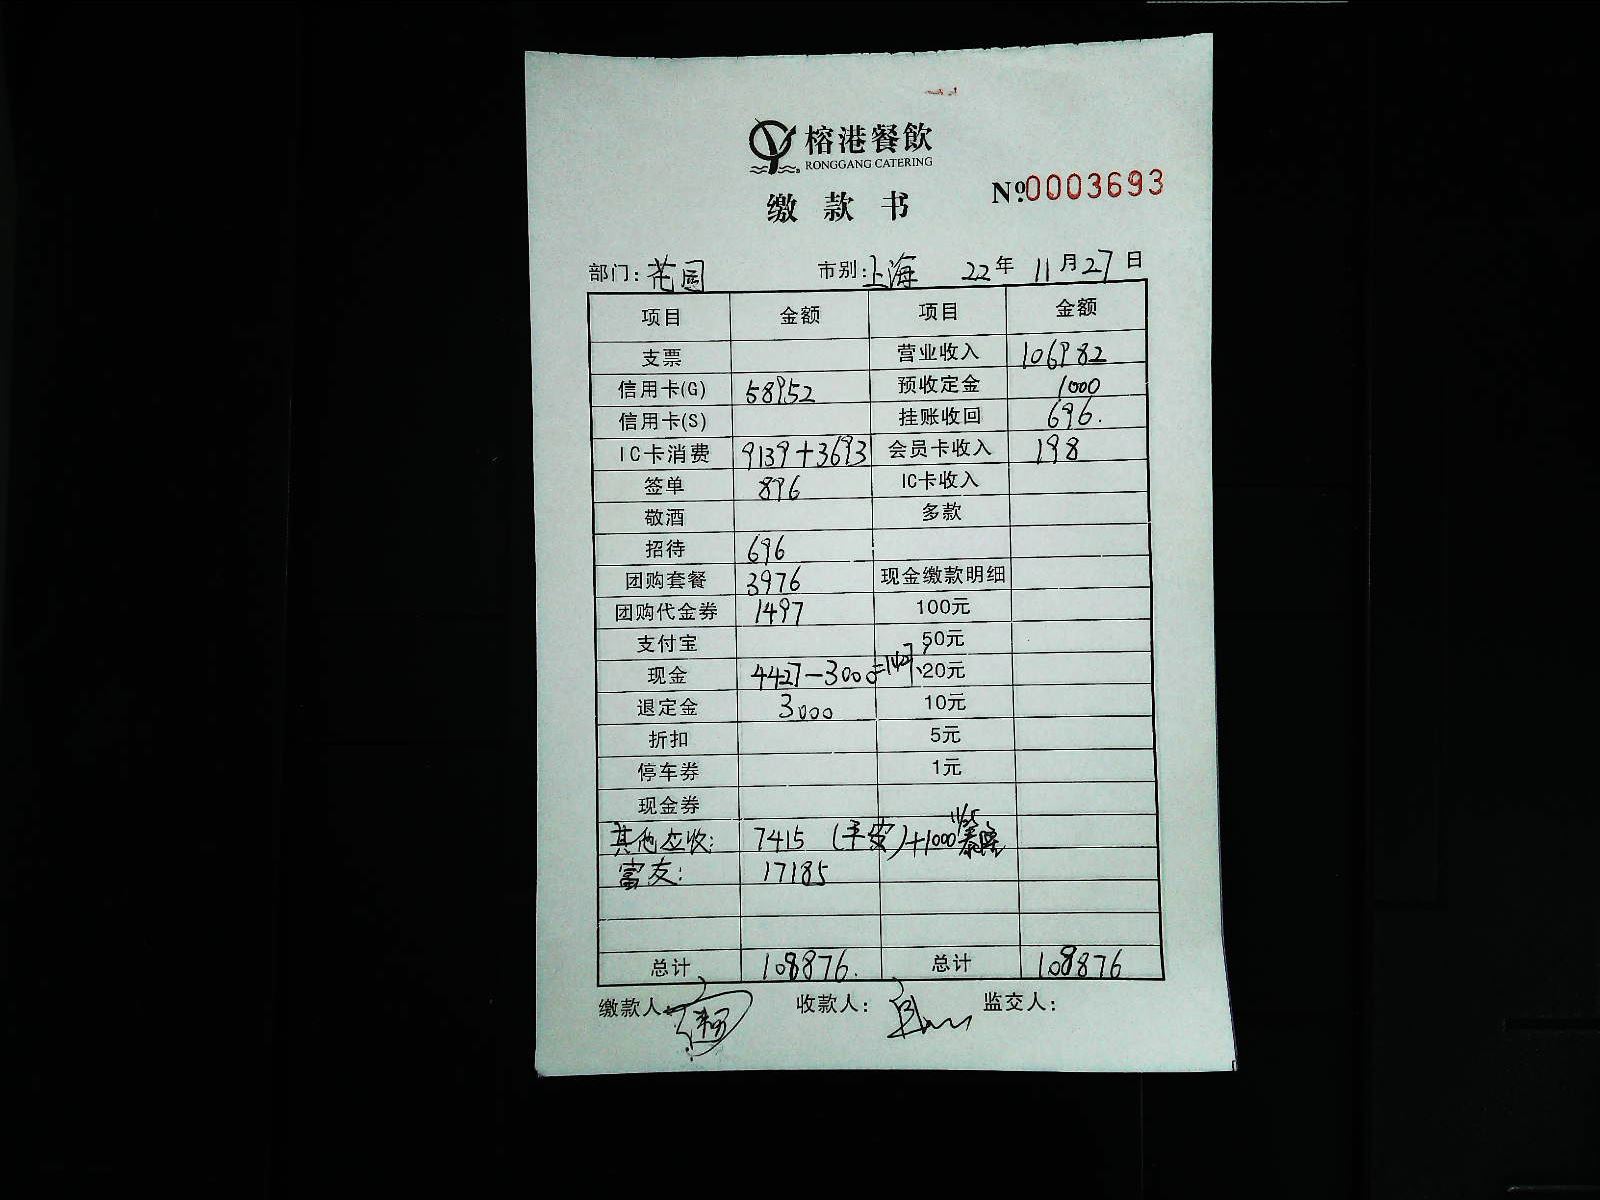 榕港餐飲
RONGGANG CATERING
缴款书
№0003693
部门:花园 市别:上海 22年 11月27日
项目 金额 项目 金额
支票 营业收入 106982
信用卡(G) 58952 预收定金 1000
信用卡(S) 挂账收回 696.
IC卡消费 9139+3693 会员卡收入 198
签单 896 IC卡收入
敬酒 多款
招待 696
团购套餐 3976 现金缴款明细
团购代金券 1497 100元
支付宝 50元
现金 4427-3000=1427 20元
退定金 3000 10元
折扣 5元
停车券 1元
现金券
其他应收: 7415 (平安)+1000
富友: 17185
总计 108876. 总计 108876
缴款人: 收款人: 监交人: